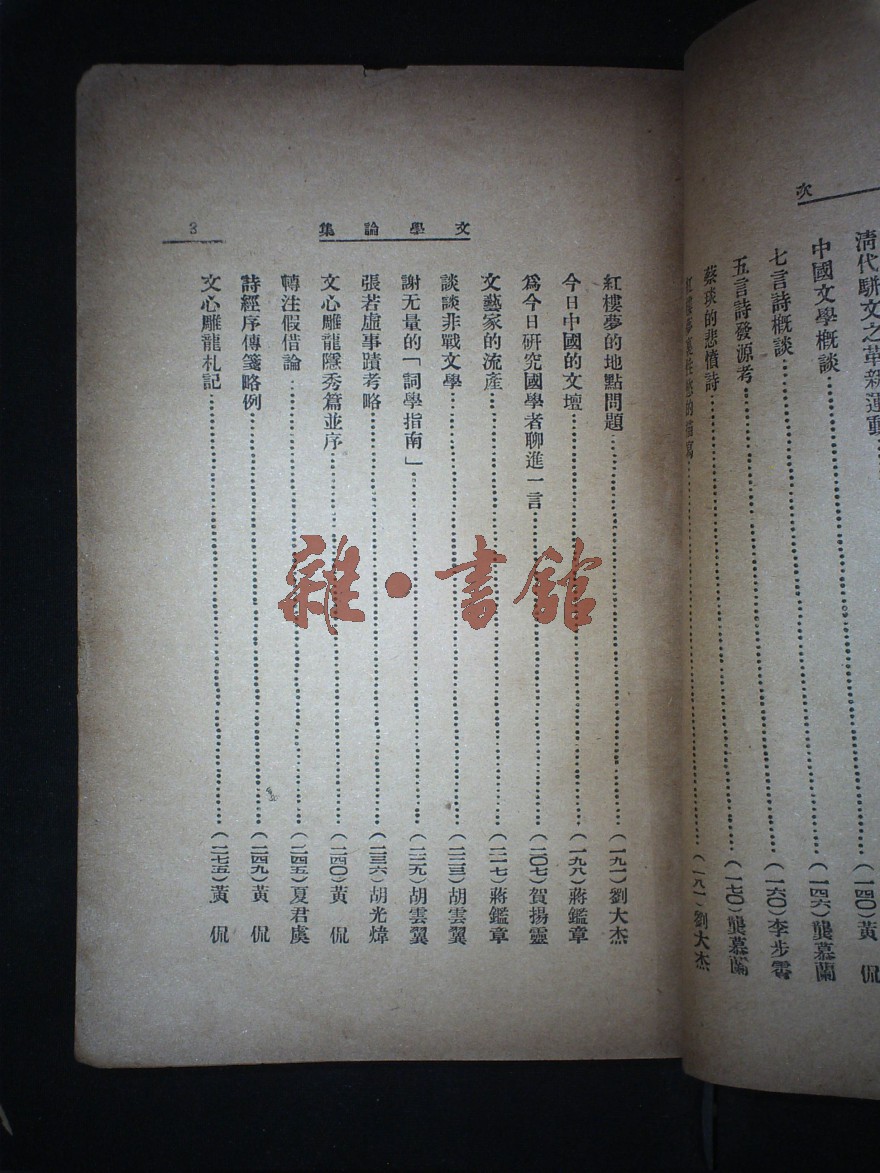 次
清代駢文之革新運動………(一四〇)黃　侃
中國文學概談………(一四六)龔慕蘭
七言詩概談………(一六〇)李步霄
五言詩發源考………(一七〇)龔慕蘭
蔡琰的悲憤詩
紅樓夢裏性慾的描寫………(一八一)劉大杰
文學論集
紅樓夢的地點問題………(一九一)劉大杰
今日中國的文壇………(一九八)蔣鑑章
爲今日研究國學者聊進一言………(二〇七)賀揚靈
文藝家的流產………(二一七)蔣鑑章
談談非戰文學………(二二三)胡雲翼
謝无量的「詞學指南」………(二二九)胡雲翼
張若虛事蹟考略………(二三六)胡光煒
文心雕龍隱秀篇並序………(二四〇)黃　侃
轉注假借論………(二四五)夏君虞
詩經序傳箋略例………(二四九)黃　侃
文心雕龍札記………(二七五)黃　侃
3
雜·書館